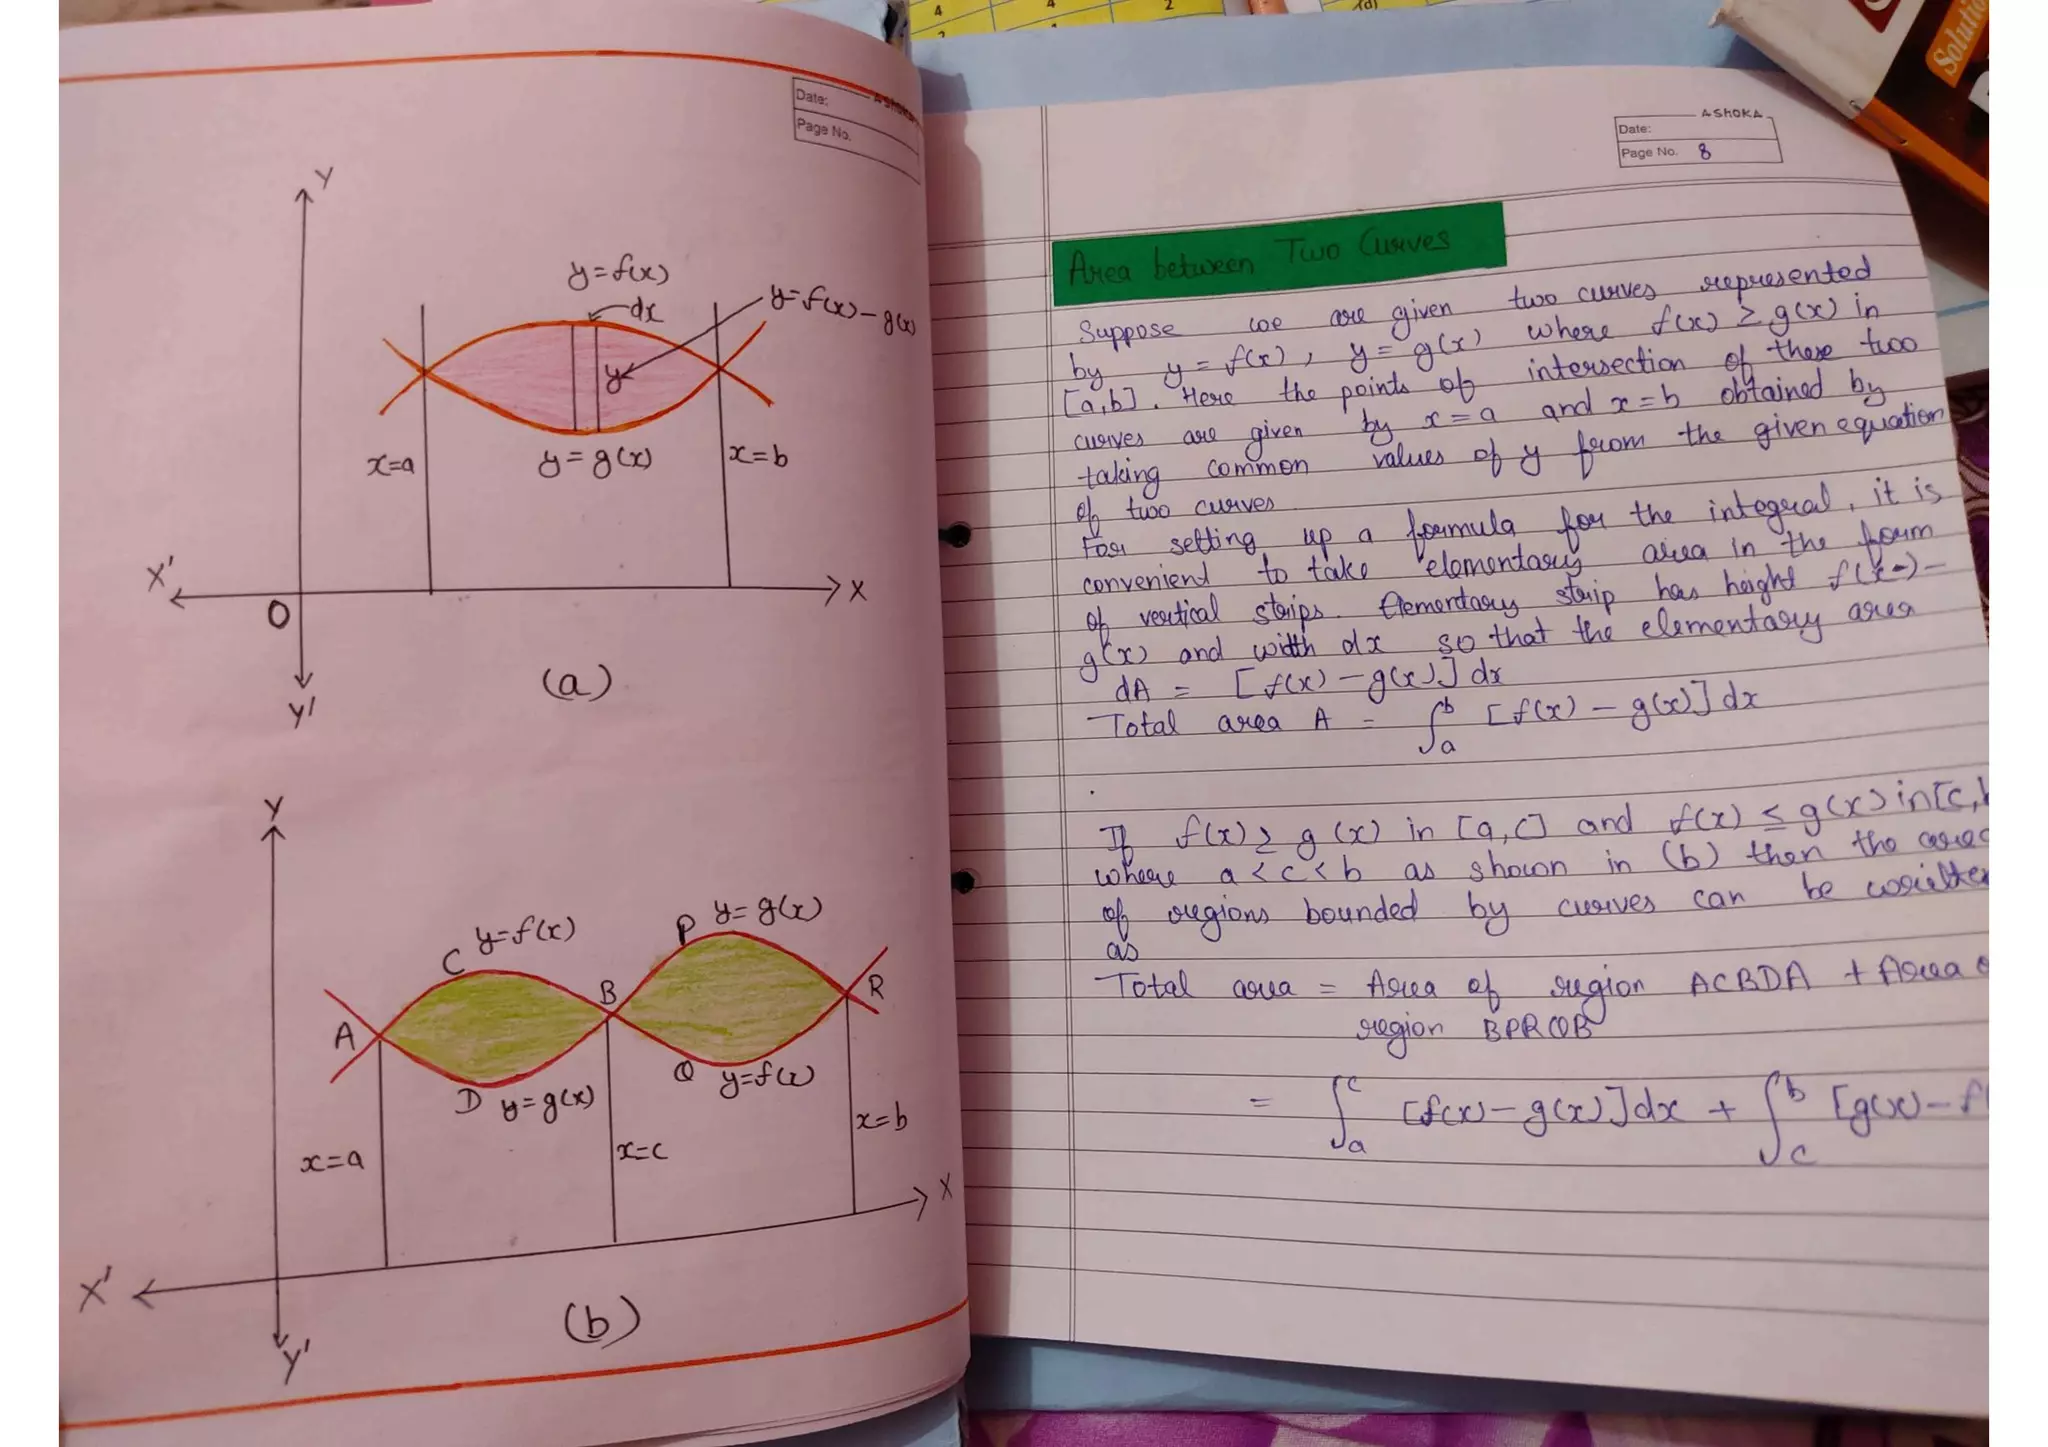 4
4
2
(d)
Solutio
Date:
ASHOKA
Page No.
Y
y=f(x)
dx
y=f(x)-g(x)
y
x=a
y=g(x)
x=b
X'
O
X
Y'
(a)
Y
C
y=f(x)
P
y=g(x)
B
R
A
D
y=g(x)
Q
y=f(x)
x=a
x=c
x=b
X
X'
Y'
(b)
ASHOKA
Date:
Page No. 8
Area between Two Curves
Suppose we are given two curves represented
by y = f(x), y = g(x) where f(x) ≥ g(x) in
[a,b]. Here the points of intersection of these two
curves are given by x = a and x = b obtained by
taking common values of y from the given equation
of two curves
For setting up a formula for the integral, it is
convenient to take elementary area in the form
of vertical strips. Elementary strip has height f(x) -
g(x) and width dx so that the elementary area
dA = [f(x) - g(x)] dx
Total area A = ∫ₐᵇ [f(x) - g(x)] dx
If f(x) ≥ g(x) in [a,c] and f(x) ≤ g(x) in [c,b
where a < c < b as shown in (b) then the area
of regions bounded by curves can be written
as
Total area = Area of region ACBDA + Area o
region BPRQB
= ∫ₐᶜ [f(x) - g(x)] dx + ∫꜀ᵇ [g(x) - f(